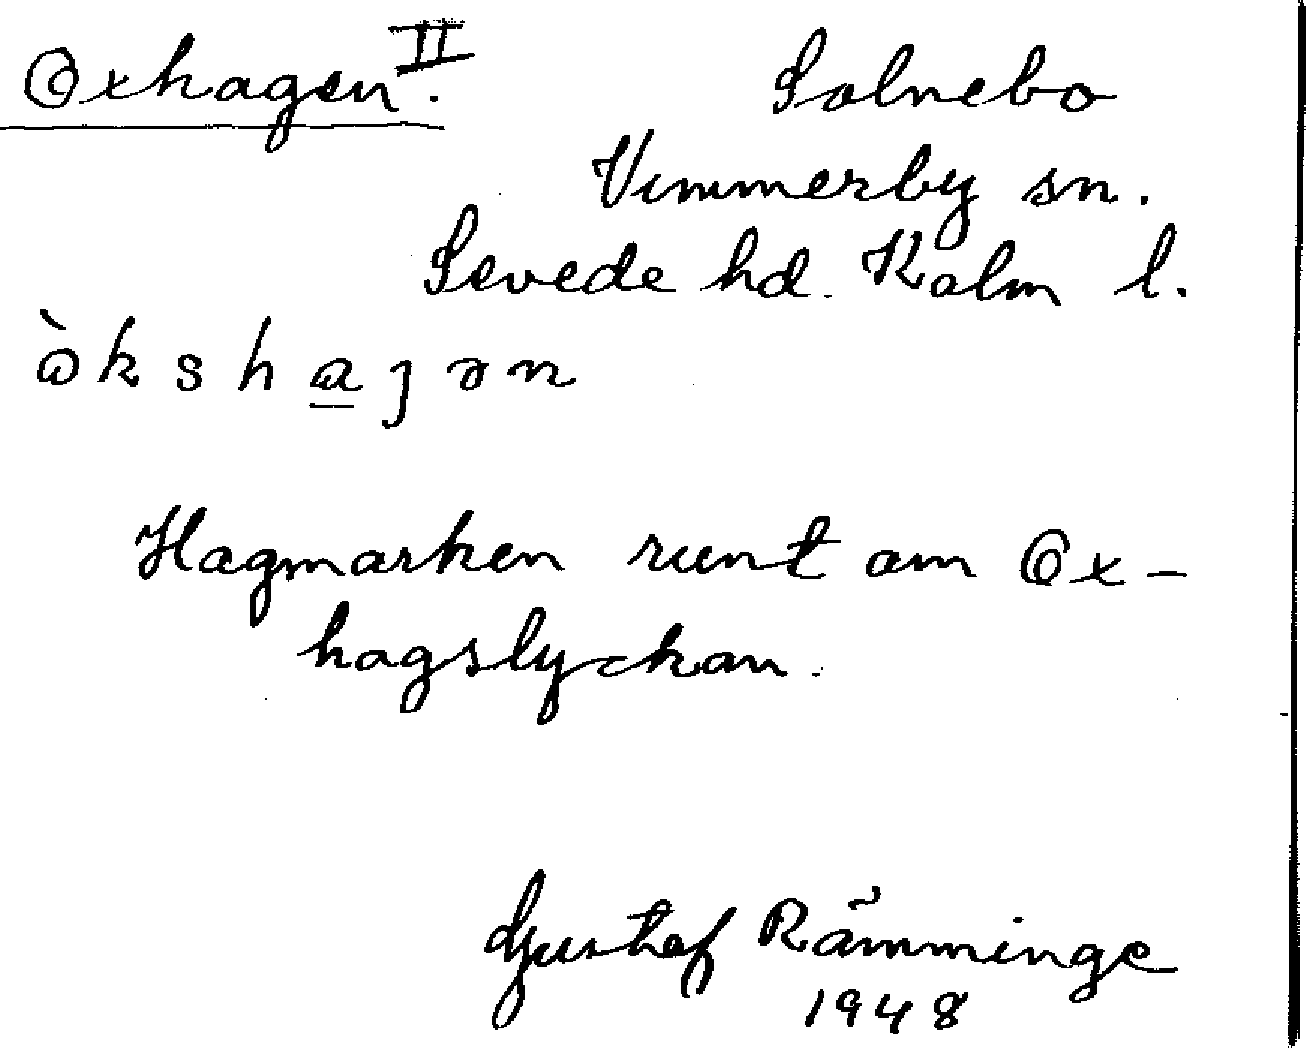 Oxhagen II.
Solnebo
Vimmerby sn.
Sevede hd. Kalm l.
ὼkshaȷən
Hagmarken runt om Ox-
hagslyckan.
Gustaf Rämminge
1948